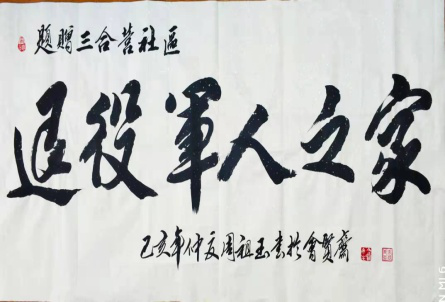 题赠三合营社区
退役軍人之家
乙亥年仲夏周祖玉书於會賢齋